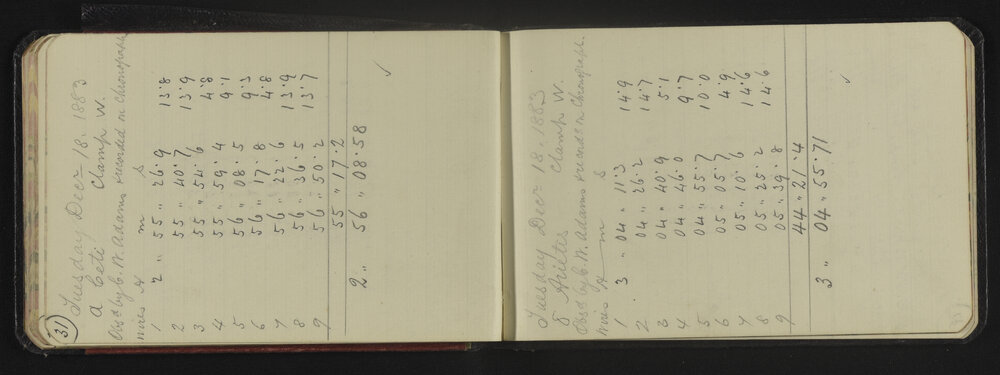 31
Tuesday Decr 18. 1883
α Ceti Clamp W.
Obsd by C. W. Adams & recorded on Chronograph
Wires H m s
1 2 „ 55 „ 26.9 13.8
2 55 „ 40.7 13.9
3 55 „ 54.6 4.8
4 55 „ 59.4 9.1
5 56 „ 08.5 9.3
6 56 „ 17.8 4.8
7 56 „ 22.6 13.9
8 56 „ 36.5 13.7
9 56 „ 50.2
55 „ 17.2
2 „ 56 „ 08.58
✓
Tuesday Decr 18. 1883
δ Arietis Clamp W.
Obsd by C. W. Adams & recorded on Chronograph.
Wires H m s
1 3 „ 04 „ 11.3 14.9
2 04 „ 26.2 14.7
3 04 „ 40.9 5.1
4 04 „ 46.0 9.7
5 04 „ 55.7 10.0
6 05 „ 05.7 4.9
7 05 „ 10.6 14.6
8 05 „ 25.2 14.6
9 05 „ 39.8
44 „ 21.4
3 „ 04 „ 55.71
✓